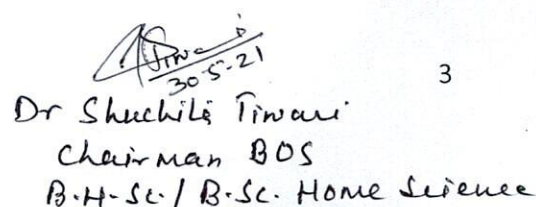 Tiwari
30-5-21
3
Dr Shuchita Tiwari
Chairman BOS
B.H-Sc. / B.Sc. Home Science